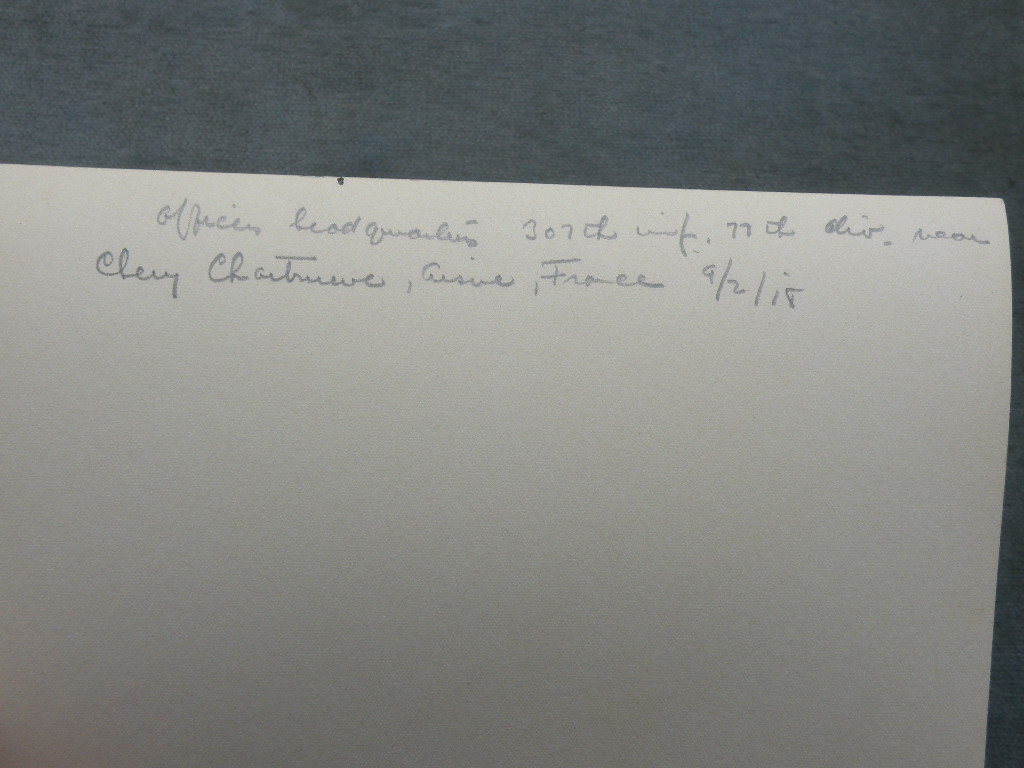 Officers headquarters 307th inf. 77th div. near
Chery Chartreuve, Aisne, France 9/2/18